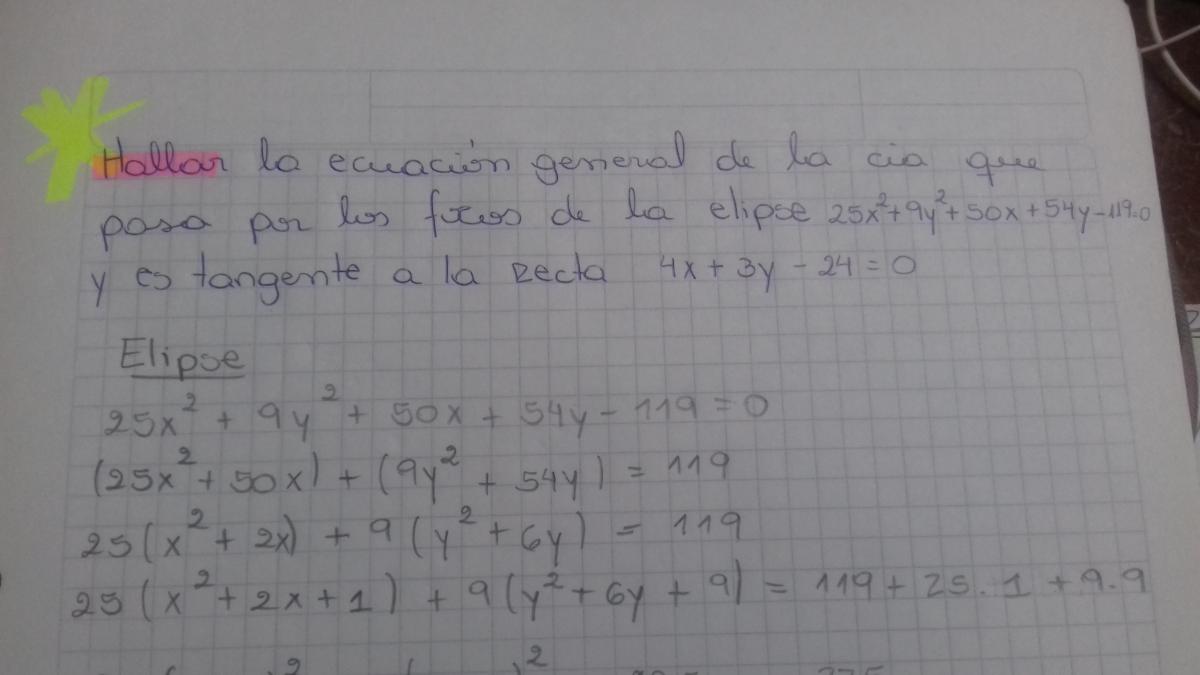 Hallar la ecuación general de la cia que
pasa por los focos de la elipse 25x²+9y²+50x+54y-119=0
y es tangente a la recta 4x+3y-24=0
Elipse
25x² + 9y² + 50x + 54y - 119 = 0
(25x² + 50x) + (9y² + 54y) = 119
25(x² + 2x) + 9(y² + 6y) = 119
25(x² + 2x + 1) + 9(y² + 6y + 9) = 119 + 25.1 + 9.9